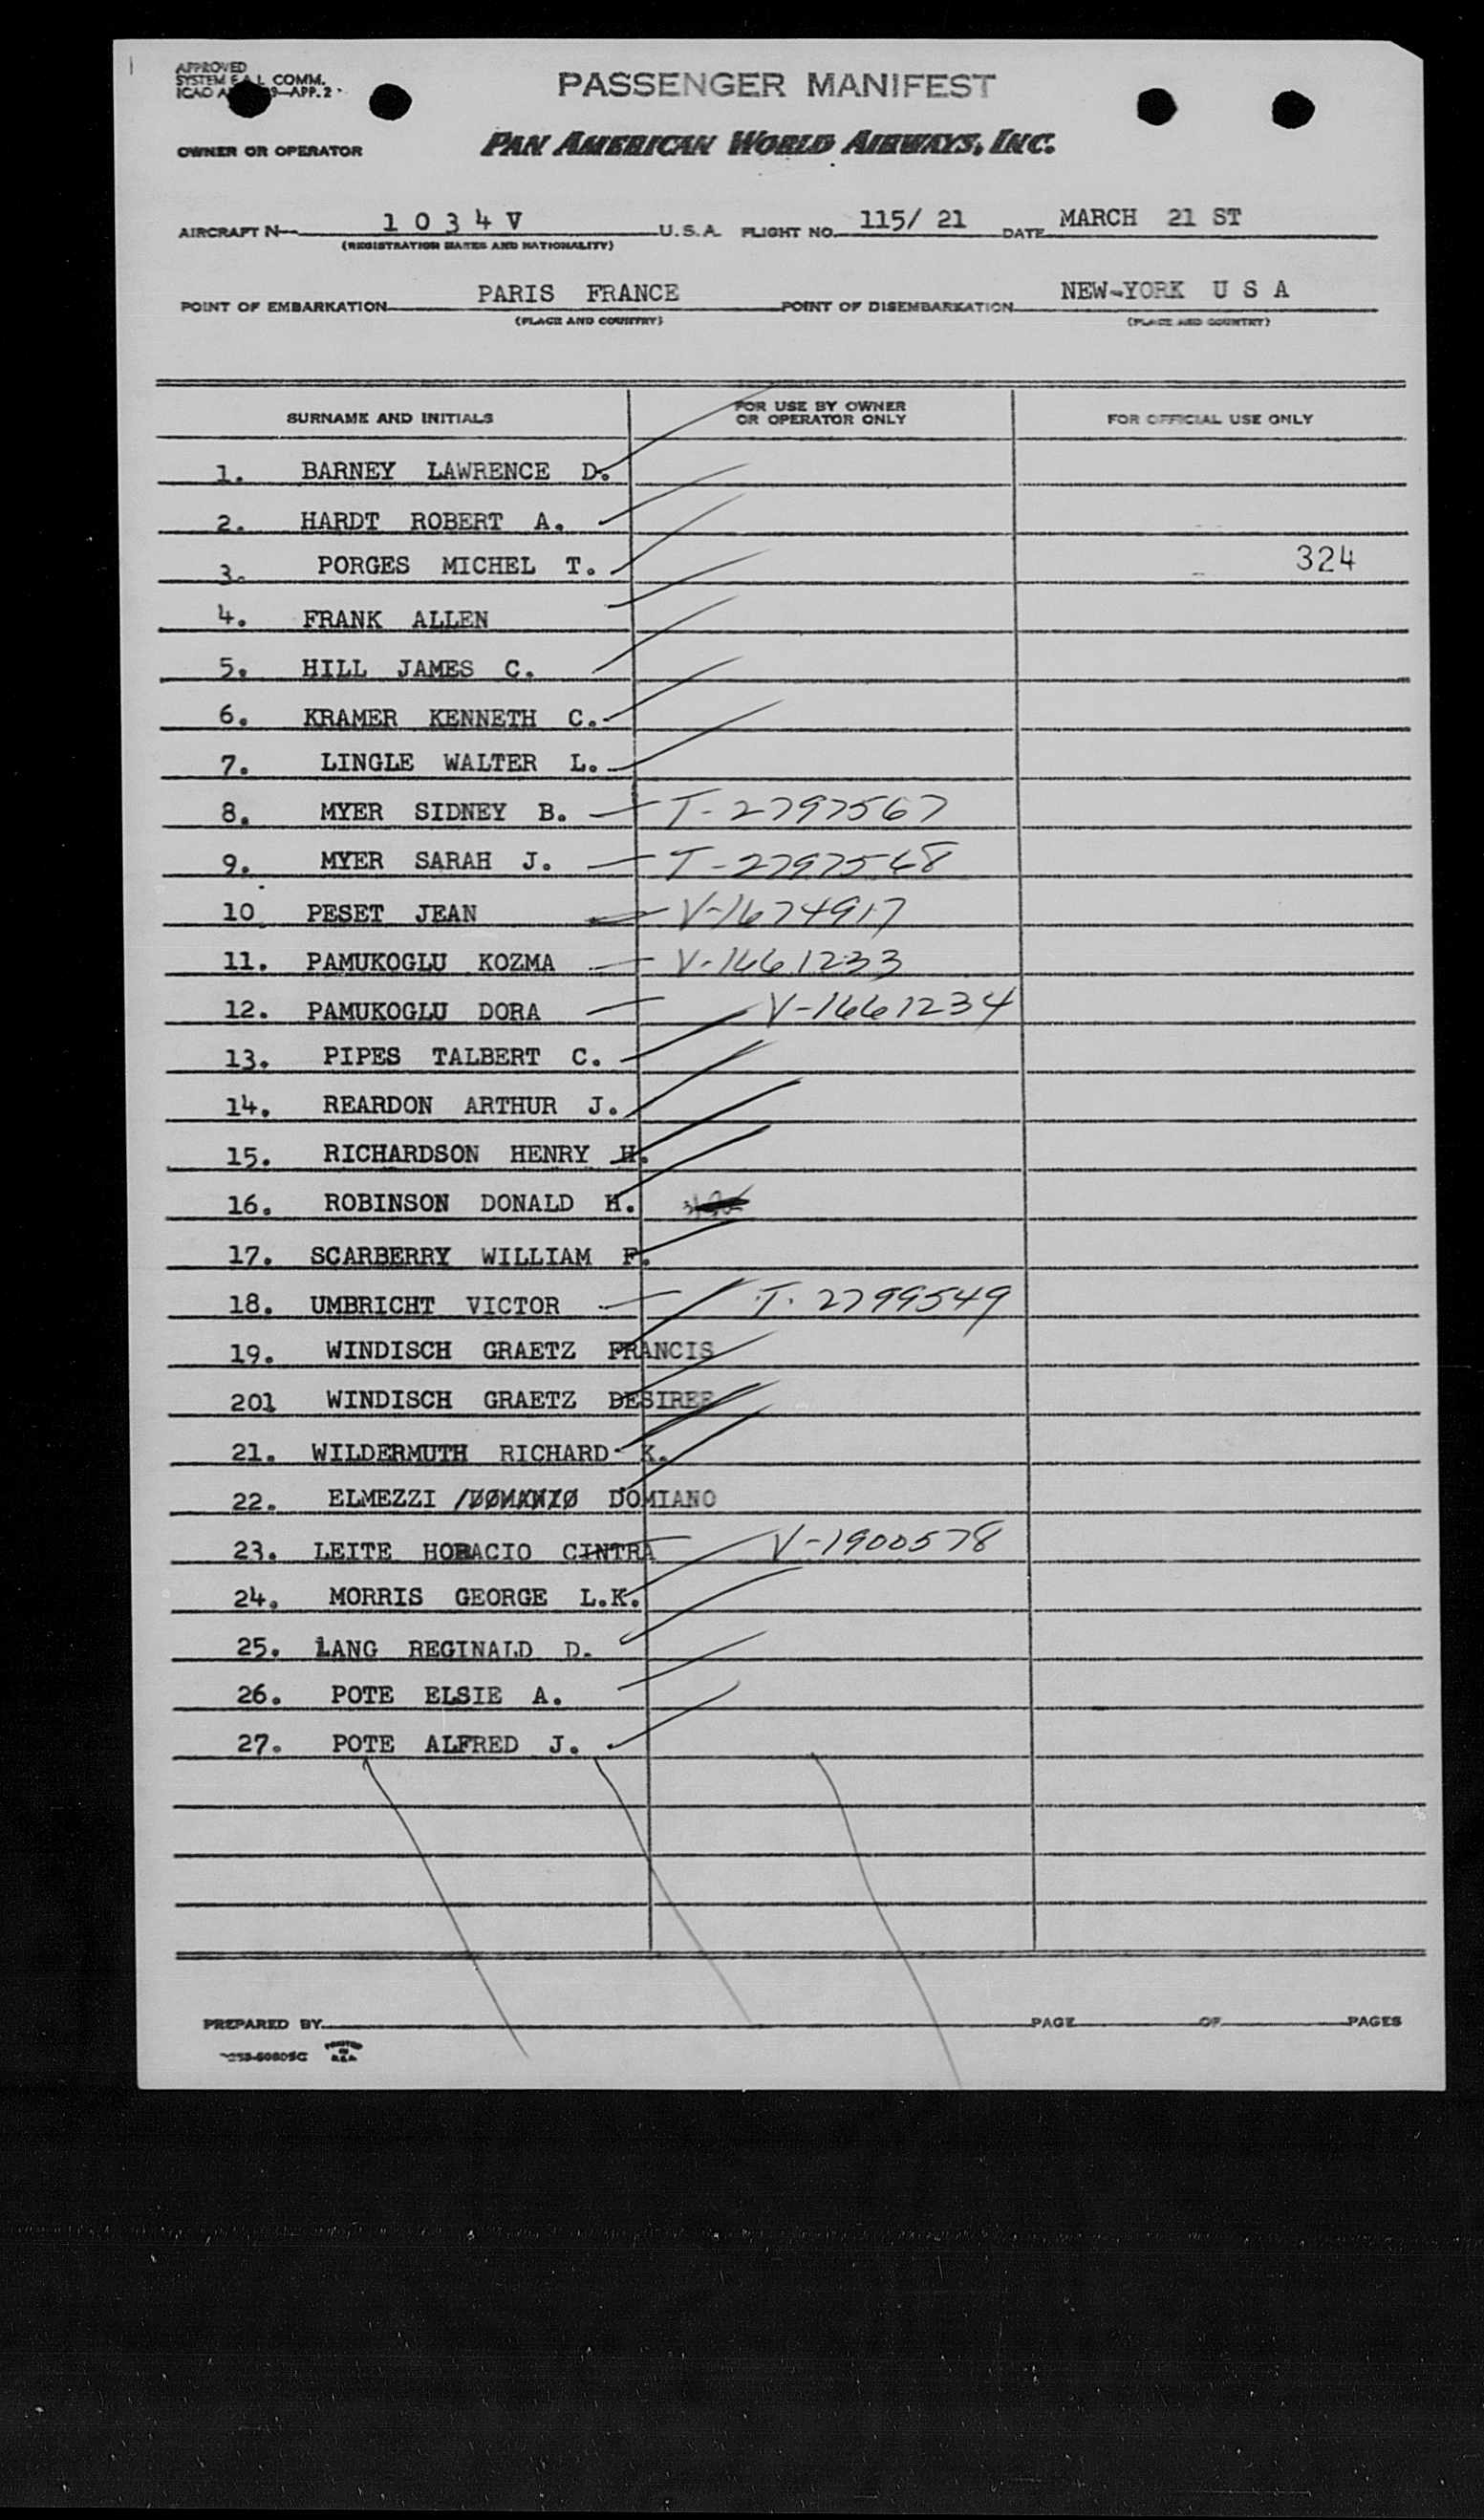 APPROVED
SYSTEM F.A.L. COMM.
ICAO 9—APP. 2
PASSENGER MANIFEST
OWNER OR OPERATOR PAN AMERICAN WORLD AIRWAYS, INC.
AIRCRAFT N— 1 0 3 4 V U.S.A. FLIGHT NO. 115/ 21 DATE MARCH 21 ST
(REGISTRATION MARKS AND NATIONALITY)
POINT OF EMBARKATION PARIS FRANCE POINT OF DISEMBARKATION NEW-YORK U S A
(PLACE AND COUNTRY) (PLACE AND COUNTRY)
SURNAME AND INITIALS FOR USE BY OWNER OR OPERATOR ONLY FOR OFFICIAL USE ONLY
1. BARNEY LAWRENCE D.
2. HARDT ROBERT A.
3. PORGES MICHEL T. 324
4. FRANK ALLEN
5. HILL JAMES C.
6. KRAMER KENNETH C.
7. LINGLE WALTER L.
8. MYER SIDNEY B. T-2797567
9. MYER SARAH J. T-2797568
10 PESET JEAN V-1674917
11. PAMUKOGLU KOZMA V-1661233
12. PAMUKOGLU DORA V-1661234
13. PIPES TALBERT C.
14. REARDON ARTHUR J.
15. RICHARDSON HENRY H.
16. ROBINSON DONALD H.
17. SCARBERRY WILLIAM F.
18. UMBRICHT VICTOR T. 2799549
19. WINDISCH GRAETZ FRANCIS
201 WINDISCH GRAETZ DESIREE
21. WILDERMUTH RICHARD K.
22. ELMEZZI DOMIANO
23. LEITE HORACIO CINTRA V-1900578
24. MORRIS GEORGE L.K.
25. LANG REGINALD D.
26. POTE ELSIE A.
27. POTE ALFRED J.
PREPARED BY PAGE OF PAGES
PRINTED
IN
U.S.A.